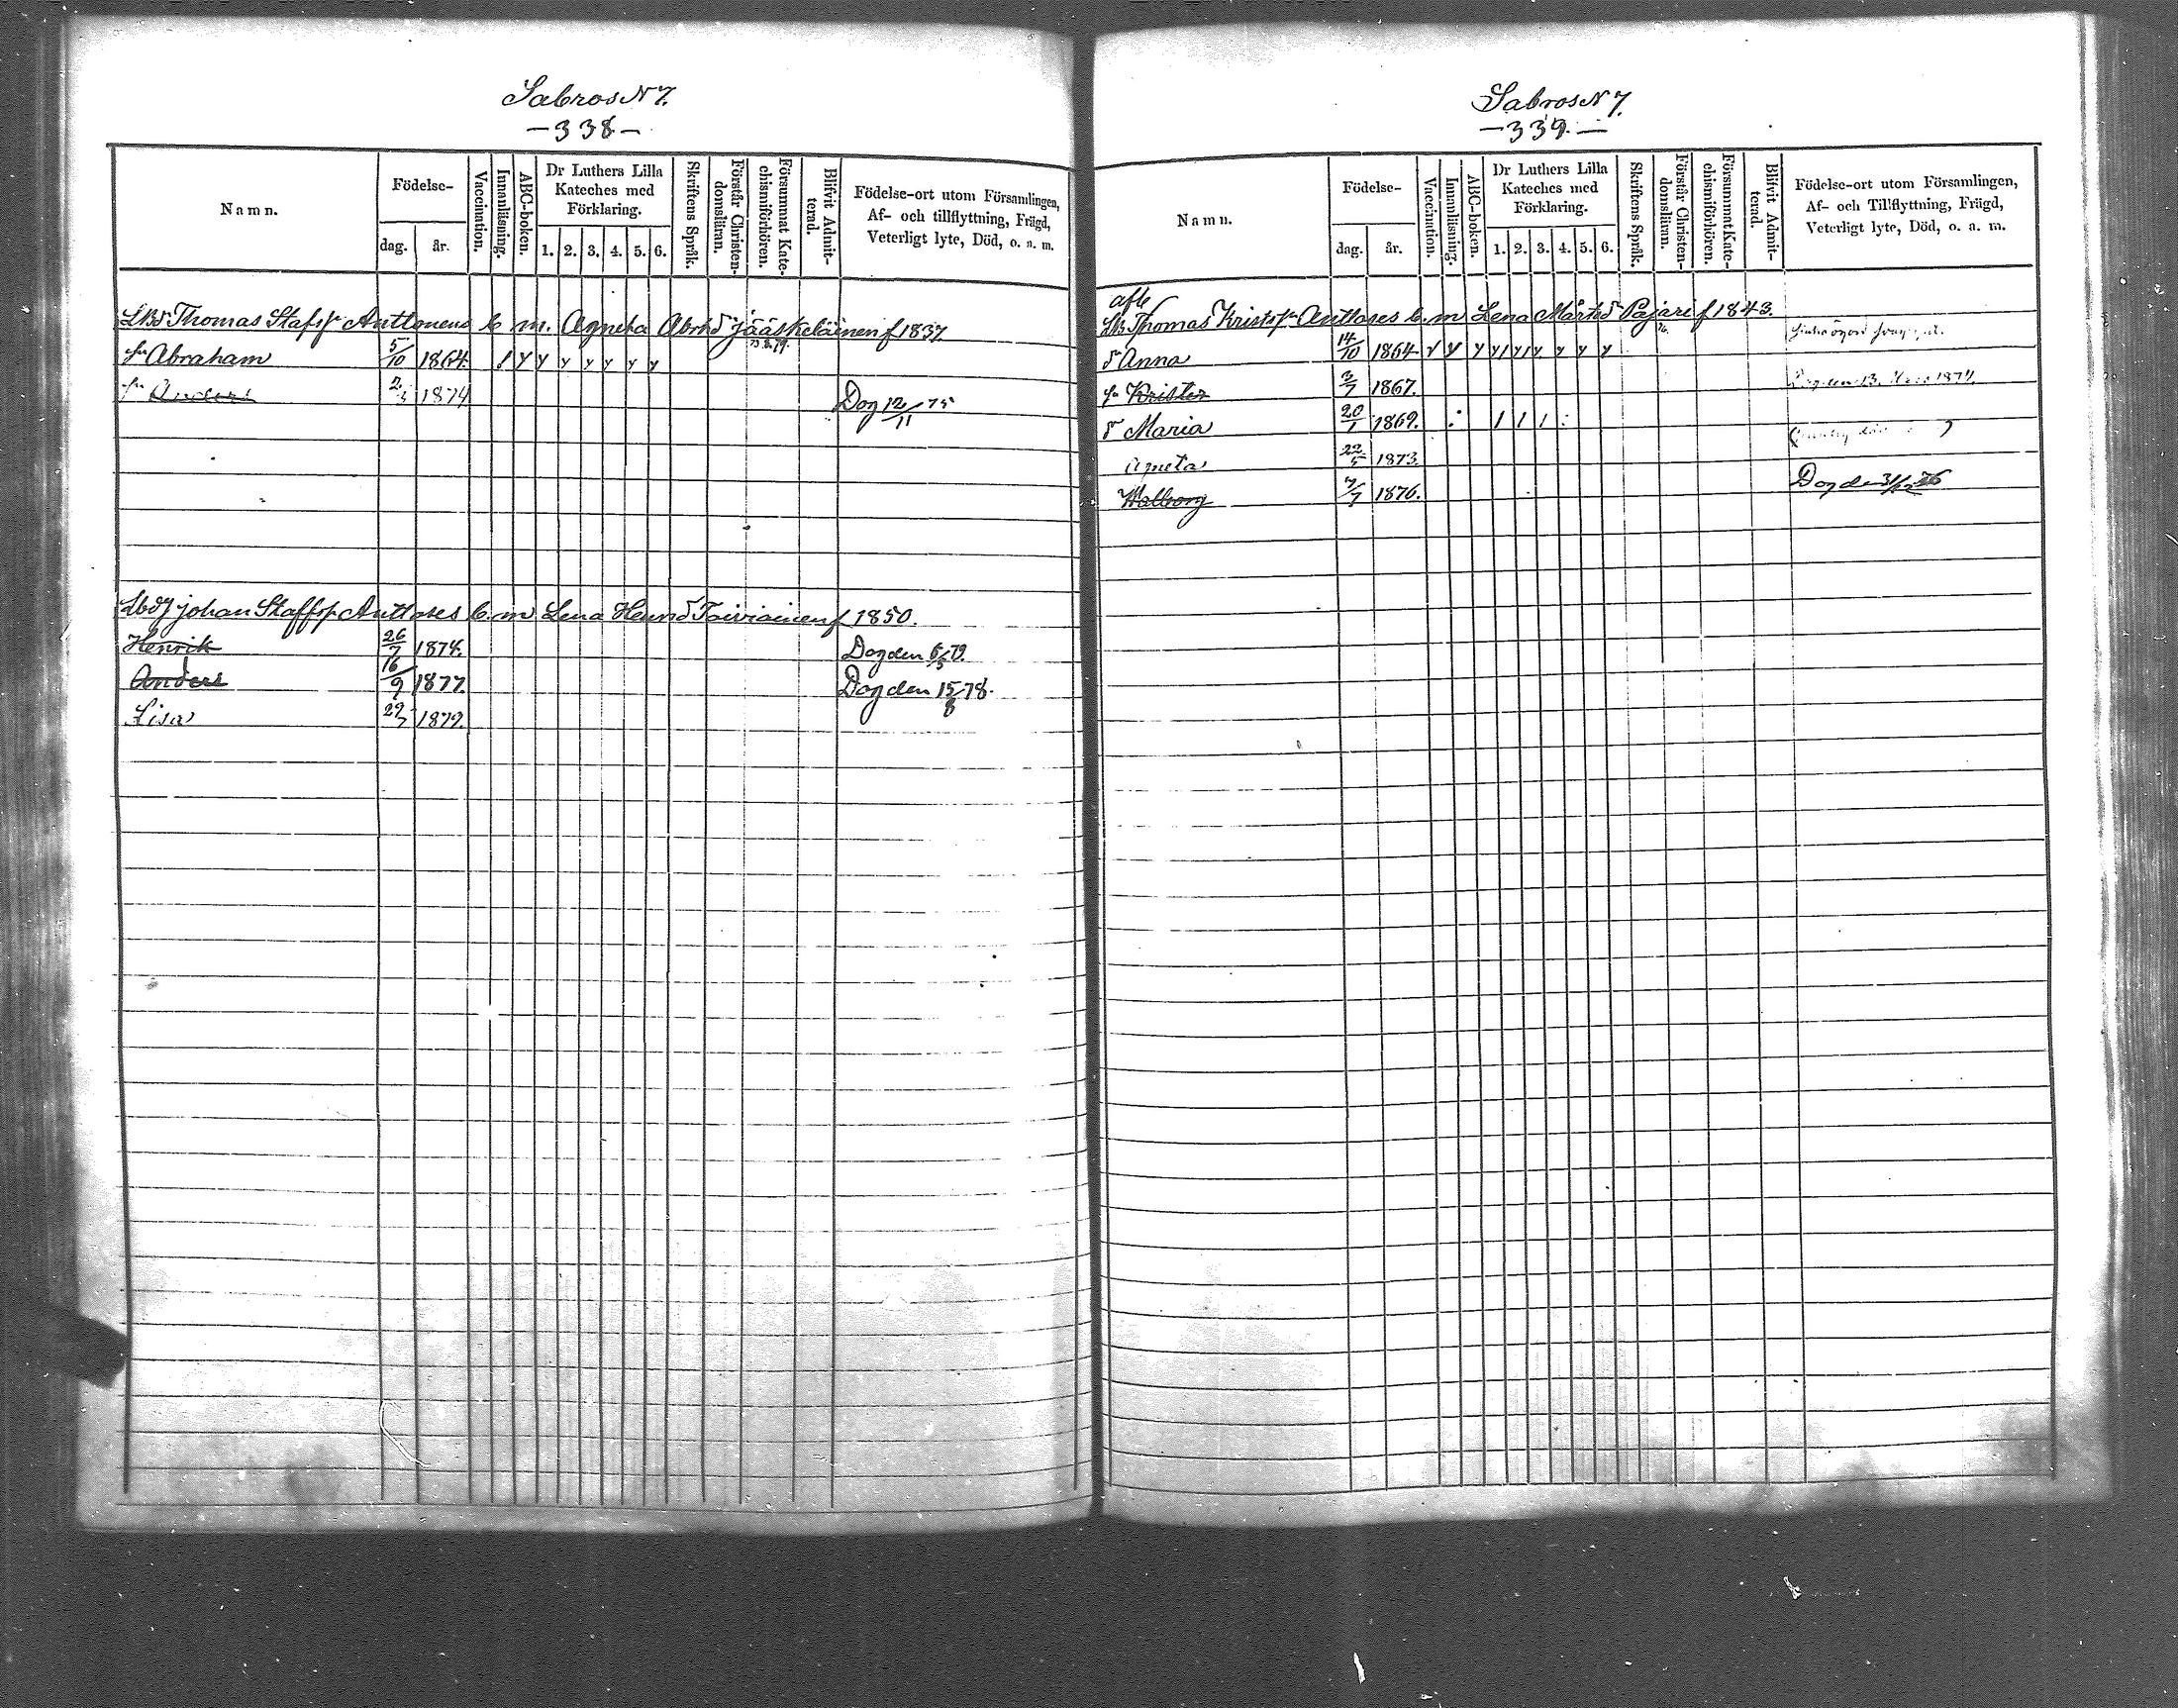 Sabros N 7.
— 338 —
Namn.
Födelse-
dag.
år.
Vaccination.
Innanläsning.
ABC-boken.
Dr Luthers Lilla Kateches med Förklaring.
1. 2. 3. 4. 5. 6.
Skriftens Språk.
Förstår Christendomsläran.
Försummat Katechismiförhören.
Blifvit Admitterad.
Födelse-ort utom Församlingen,
Af- och tillflyttning, Frägd,
Veterligt lyte, Död, o. s. m.
Thomas Stafsp Anttonens b. m. Agneta Abrhd Jääskeläinen f 1837.
Abraham 5/10 1864.
Anders 2/3 1874 Dog 12/11 75
Johan Staffsp Anttoses b. m Lena Henrd Toiviainen f 1850.
Henrik 26/7 1874. Dog den 6/5 79.
Anders 16/9 1877. Dog den 15/8 78.
Lisa 29/7 1879.
Sabros N 7.
— 339. —
Namn.
Födelse-
dag.
år.
Vaccination.
Innanläsning.
ABC-boken.
Dr Luthers Lilla Kateches med Förklaring.
1. 2. 3. 4. 5. 6.
Skriftens Språk.
Förstår Christendomsläran.
Försummat Katechismiförhören.
Blifvit Admitterad.
Födelse-ort utom Församlingen,
Af- och Tillflyttning, Frägd,
Veterligt lyte, Död, o. a. m.
Thomas Kristofsn Anttoses b. m Lena Mårtsd Pajari f 1843.
Anna 14/10 1864
Krister 3/7 1867. 1874.
Maria 20/1 1869.
Agneta 22/5 1873.
Walborg 7/7 1876. Dog den 31/12 76